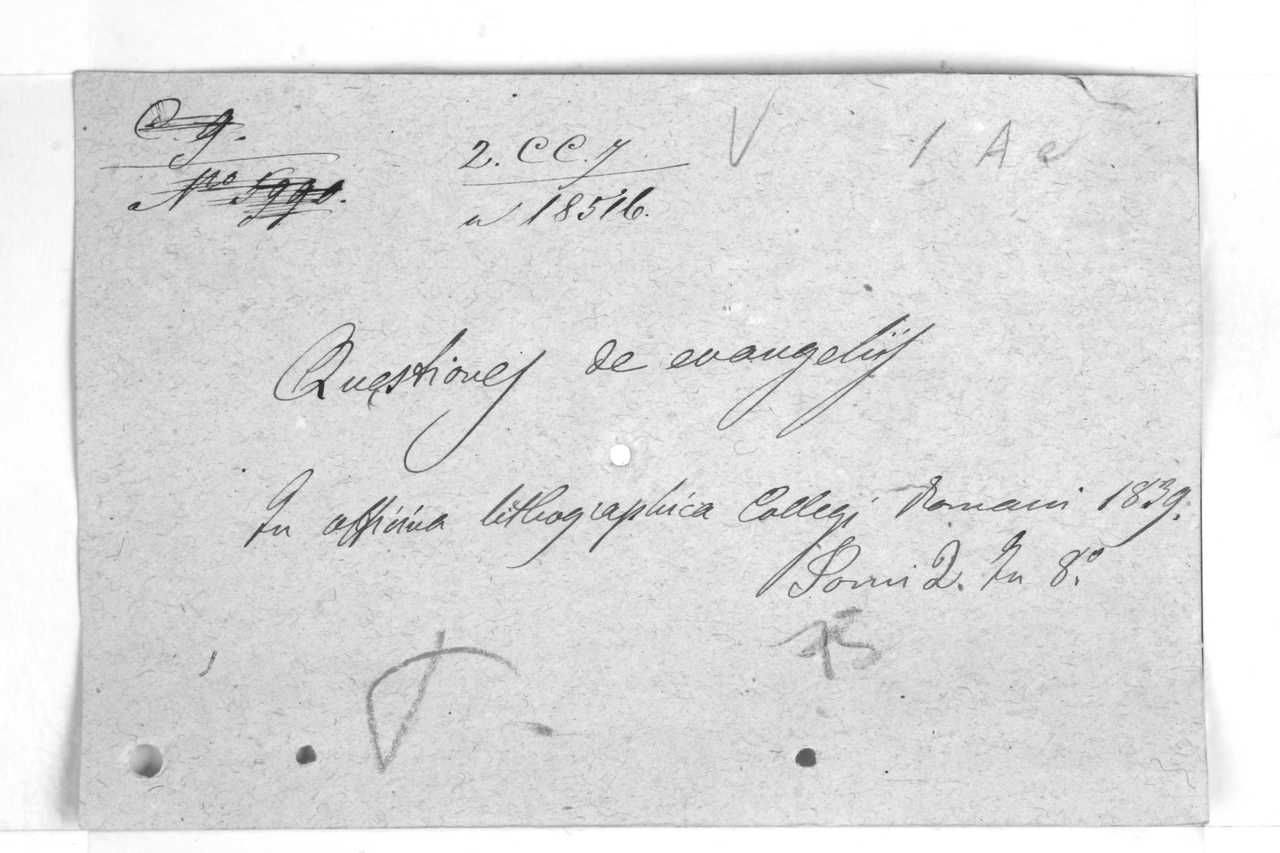 C. g. 2. CC. 7 V 1 A e
Nro 5990. n 18516.
Questiones de evangelijs
In officina lithographica Collegj Romani 1839.
Tomi 2. In 8.º
15